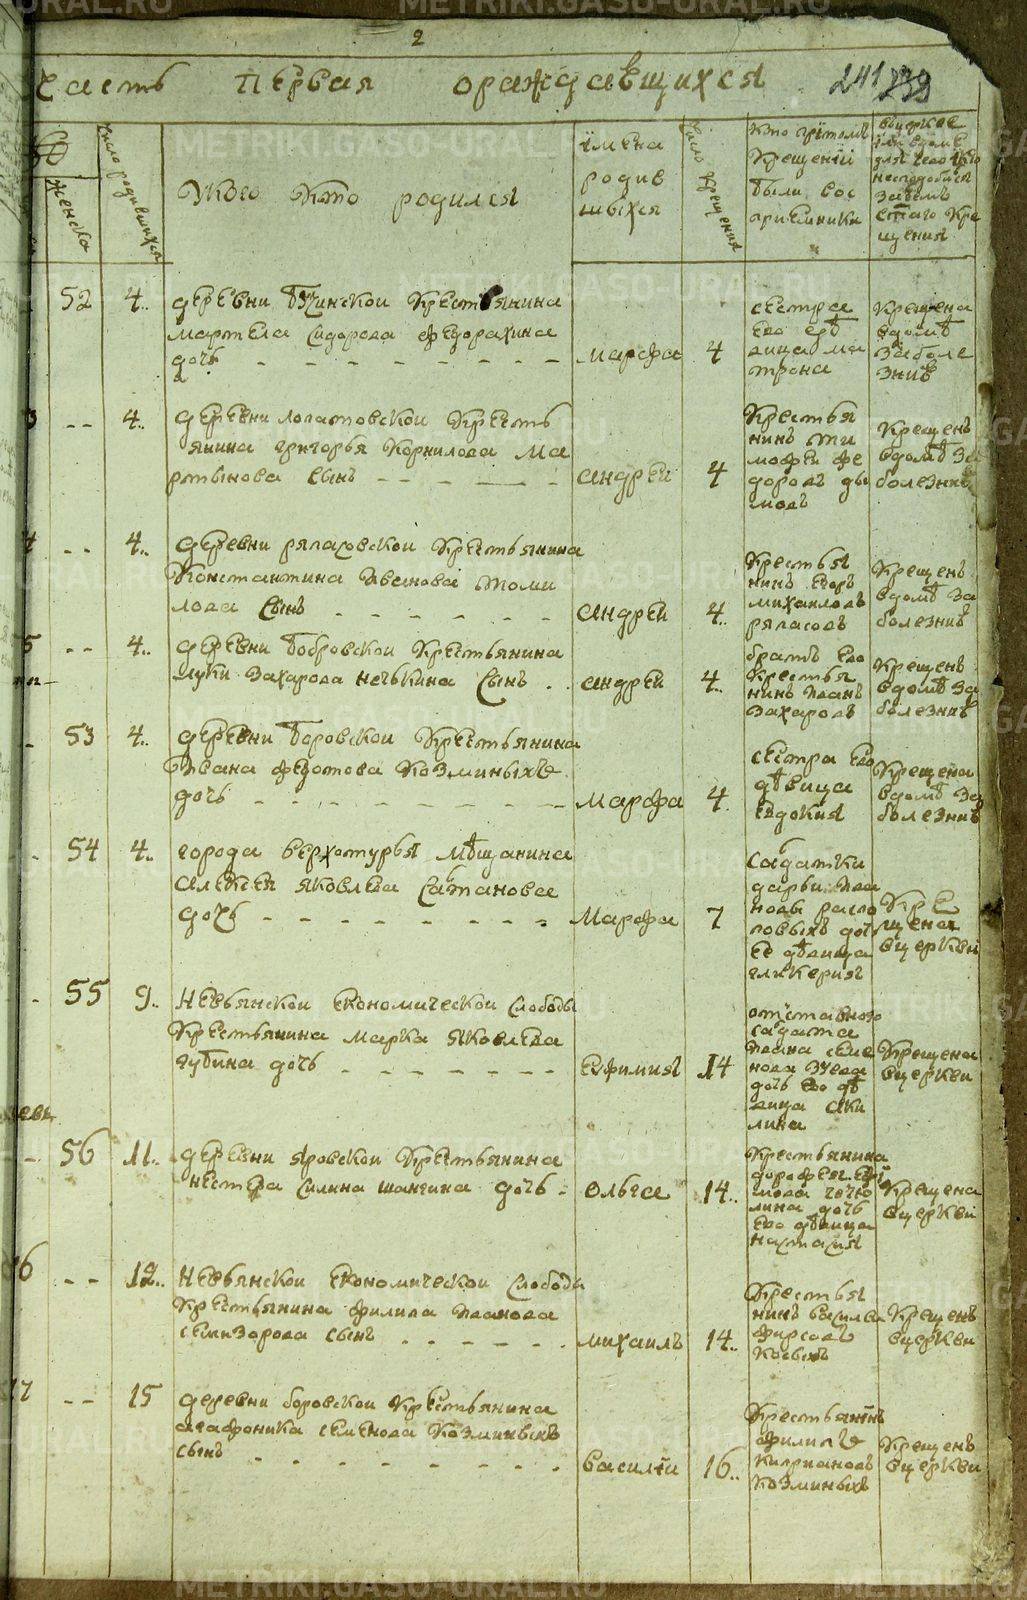 2
часть первая ораждавшихся 241 239
женска
число родившихся
Укого кто родился
імена
родив
шыхся
число крещения
кто прітомъ
крещеніи
были вос
приемники
вцеркве
іли вдоме
для чего і кто
несподобился
святаго кре
щения
52 4.. деревни крестьянина
мартела сидорова федорахина
дочь марфа 4
сестра
ево
вица ма
трона
крещена
вдомѣ
заболе
знию
-- 4. деревни лопатовской кресть
янина григорья корнилова ма
ртынова сынъ андрей 4
крестья
нинъ ти
мофеи фе
доровъ ды
мовъ
крещенъ
вдомѣ за
болезнию
-- 4.. деревни ряпасовской крестьянина
константина иванова томи
лова сынъ андрей 4..
крестья
нинъ егоръ
михаиловъ
ряпасовъ
крещенъ
вдомѣ за
болезнию
-- 4.. деревни бобровской крестьянина
луки захарова сынъ .. андрей 4..
братъ ево
крестья
нинъ иванъ
захаровъ
крещенъ
вдомѣ за
болезнию
53 4. деревни боровской крестьянина
ивана федотова козминыхъ
дочь марфа 4.
сестра ево
дѣвица
евдокия
крещена
вдомѣ за
болезнию
54 4.. города верхотурья мѣщанина
алексея яковлева
дочь марфа 7
салдатки
дарьи ива
новы
повыхъ дочь
ее дѣвица
гликерия
кре
щена
вцеркви
55 9.. невьянской економической слободы
крестьянина марка яковлева
губина дочь евфимия 14
отставного
салдата
ивана семе
нова зуева
дочь ево дѣ
вица аки
лина
крещена
вцеркви
56 11.. деревни яровской крестьянина
нестера силина шангина дочь - ольга 14..
крестьянина
дорофея
дочь
ево дѣвица
настасия
крещена
вцеркви
-- 12.. невьянской економической слободы
крестьянина филипа иванова
сынъ михаилъ 14..
крестья
нинъ василеи
фирсовъ
косыхъ
крещенъ
вцеркви
-- 15 деревни боровской крестьянина
агафоника семенова козминыхъ
сынъ василіи 16..
крестьянинъ
филипъ
киприановъ
козминыхъ
крещенъ
вцеркви
METRIKI.GASO-URAL.RU